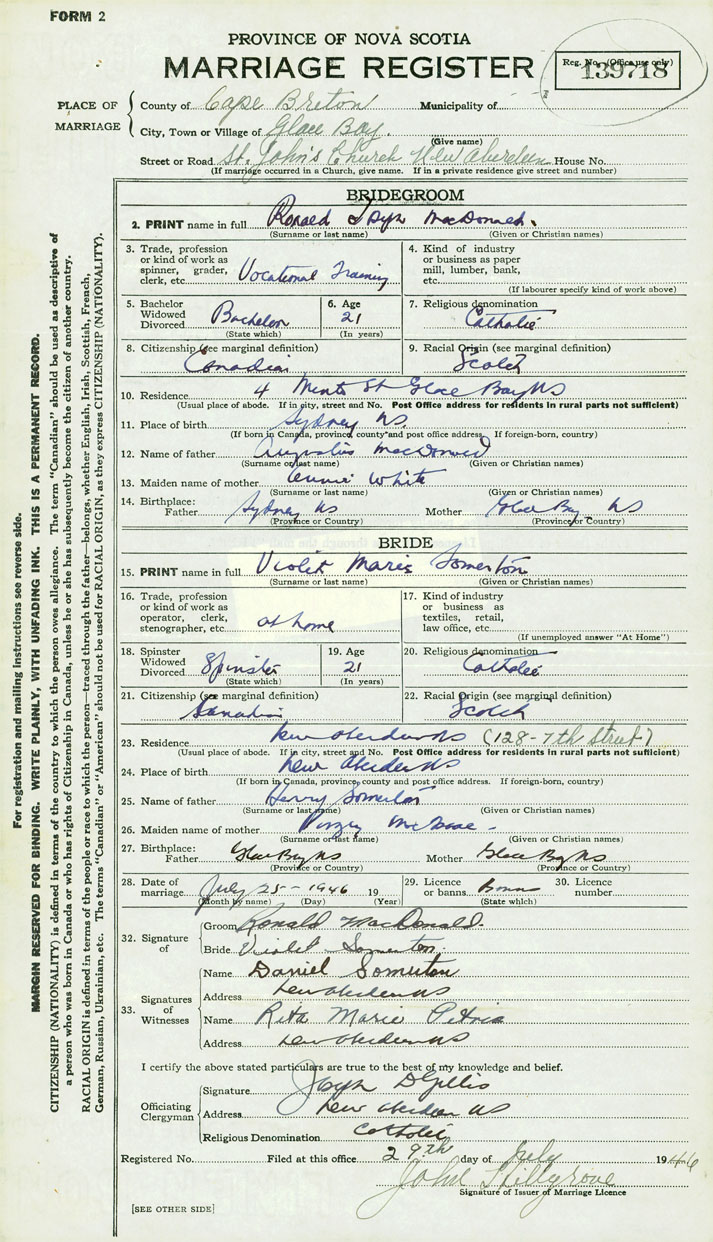 FORM 2
PROVINCE OF NOVA SCOTIA
MARRIAGE REGISTER
Reg. No. (Office use only)
139718
PLACE OF MARRIAGE
County of Cape Breton Municipality of
City, Town or Village of Glace Bay.
(Give name)
Street or Road St. John's Church New Aberdeen House No.
(If marriage occurred in a Church, give name. If in a private residence give street and number)
BRIDEGROOM
2. PRINT name in full Ronald Joseph MacDonald.
(Surname or last name) (Given or Christian names)
3. Trade, profession or kind of work as spinner, grader, clerk, etc. Vocational Training
4. Kind of industry or business as paper mill, lumber, bank, etc.
(If labourer specify kind of work above)
5. Bachelor Widowed Divorced Bachelor
(State which)
6. Age 21
(In years)
7. Religious denomination
Catholic
8. Citizenship (see marginal definition)
Canadian
9. Racial Origin (see marginal definition)
Scotch
10. Residence 4 St Glace Bay NS
(Usual place of abode. If in city, street and No. Post Office address for residents in rural parts not sufficient)
11. Place of birth Sydney NS.
(If born in Canada, province, county and post office address. If foreign-born, country)
12. Name of father MacDonald
(Surname or last name) (Given or Christian names)
13. Maiden name of mother Annie White
(Surname or last name) (Given or Christian names)
14. Birthplace: Father Sydney NS Mother Glace Bay NS
(Province or Country) (Province or Country)
BRIDE
15. PRINT name in full Violet Marie Somerton
(Surname or last name) (Given or Christian names)
16. Trade, profession or kind of work as operator, clerk, stenographer, etc. at home
17. Kind of industry or business as textiles, retail, law office, etc.
(If unemployed answer "At Home")
18. Spinster Widowed Divorced Spinster
(State which)
19. Age 21
(In years)
20. Religious denomination
Catholic
21. Citizenship (see marginal definition)
Canadian
22. Racial Origin (see marginal definition)
Scotch
23. Residence New Aberdeen NS (128-7th Street)
(Usual place of abode. If in city, street and No. Post Office address for residents in rural parts not sufficient)
24. Place of birth New Aberdeen NS
(If born in Canada, province, county and post office address. If foreign-born, country)
25. Name of father Henry Somerton
(Surname or last name) (Given or Christian names)
26. Maiden name of mother McIsaac
(Surname or last name) (Given or Christian names)
27. Birthplace: Father Glace Bay NS Mother Glace Bay NS
(Province or Country) (Province or Country)
28. Date of marriage July 25 - 1946 19
(Month by name) (Day) (Year)
29. Licence or banns Banns
(State which)
30. Licence number
32. Signature of
Groom Ronald MacDonald.
Bride Violet Somerton.
33. Signatures of Witnesses
Name Daniel Somerton
Address New Aberdeen NS
Name Rita Marie Petrie
Address New Aberdeen NS
I certify the above stated particulars are true to the best of my knowledge and belief.
Officiating Clergyman
Signature Joseph D Gillis
Address New Aberdeen NS
Religious Denomination Catholic
Registered No. Filed at this office 29th day of July 1946
John
Signature of Issuer of Marriage Licence
[SEE OTHER SIDE]
For registration and mailing instructions see reverse side.
MARGIN RESERVED FOR BINDING. WRITE PLAINLY, WITH UNFADING INK. THIS IS A PERMANENT RECORD.
CITIZENSHIP (NATIONALITY) is defined in terms of the country to which the person owes allegiance. The term "Canadian" should be used as descriptive of
a person who was born in Canada or who has rights of Citizenship in Canada, unless he or she has subsequently become the citizen of another country.
RACIAL ORIGIN is defined in terms of the people or race to which the person—traced through the father—belongs, whether English, Irish, Scottish, French,
German, Russian, Ukrainian, etc. The terms "Canadian" or "American" should not be used for RACIAL ORIGIN, as they express CITIZENSHIP (NATIONALITY).